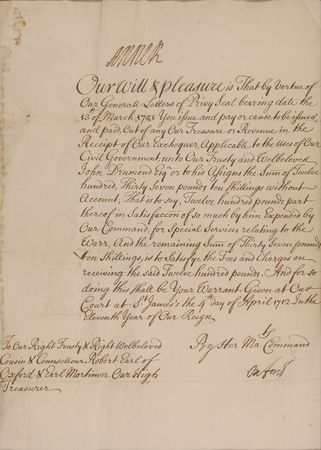 ANNE R
Our Will & Pleasure is That by Vertue of
Our Generall Letters of Privy Seal bearing date the
13th of March 1701 You issue and pay or cause to be issued
and paid, Out of any Our Treasure or Revenue in the
Receipt of Our Exchequer, Applicable to the Uses of Our
Civill Government, unto Our Trusty and Welbeloved
John Drumond Esqr or to his Assigns the Sum of Twelve
hundred, Thirty Seven pounds ten Shillings without
Account, That is to say, Twelve hundred pounds part
thereof in Satisfaccon of so much by him Expended by
Our Command, for Special Services relating to the
Warr, And the remaining Sum of Thirty Seven pounds
ten Shillings, is to Satisfy the Fees and Charges on
receiving the said Twelve hundred pounds. And for so
doing this shall be Your Warrant Given at Our
Court at St James's the 4th day of April 1712. In the
Eleventh Year of Our Reign
To Our Right Trusty & Right Welbeloved
Cousin & Councellour Robert Earl of
Oxford & Earl Mortimer Our High
Treasurer
By Her Mats Command
Oxford